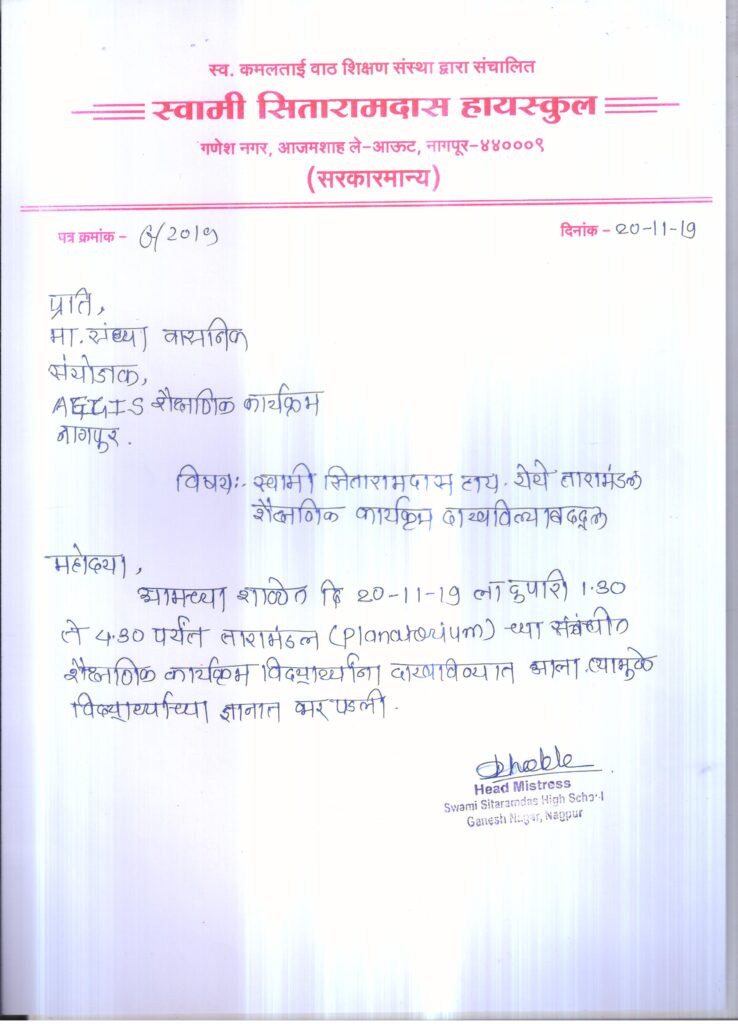 स्व. कमलताई वाठ शिक्षण संस्था द्वारा संचालित
स्वामी सितारामदास हायस्कुल
गणेश नगर, आजमशाह ले-आऊट, नागपूर-४४०००९
(सरकारमान्य)
पत्र क्रमांक - /2019
दिनांक - 20-11-19
प्रति,
मा. संध्या वासनिक
संयोजक,
शैक्षणिक कार्यक्रम
नागपूर.
विषय:- स्वामी सितारामदास हाय. येथे तारामंडल
शैक्षणिक कार्यक्रम दाखविल्याबद्दल
महोदया,
आमच्या शाळेत दि 20-11-19 ला दुपारी 1.30
ते 4.30 पर्यंत तारामंडल (Planatorium) च्या संबंधीत
शैक्षणिक कार्यक्रम विद्यार्थ्यांना दाखविण्यात आला. त्यामुळे
विद्यार्थ्यांच्या ज्ञानात भर पडली.
Head Mistress
Swami Sitaramdas High School
Ganesh Nagar, Nagpur